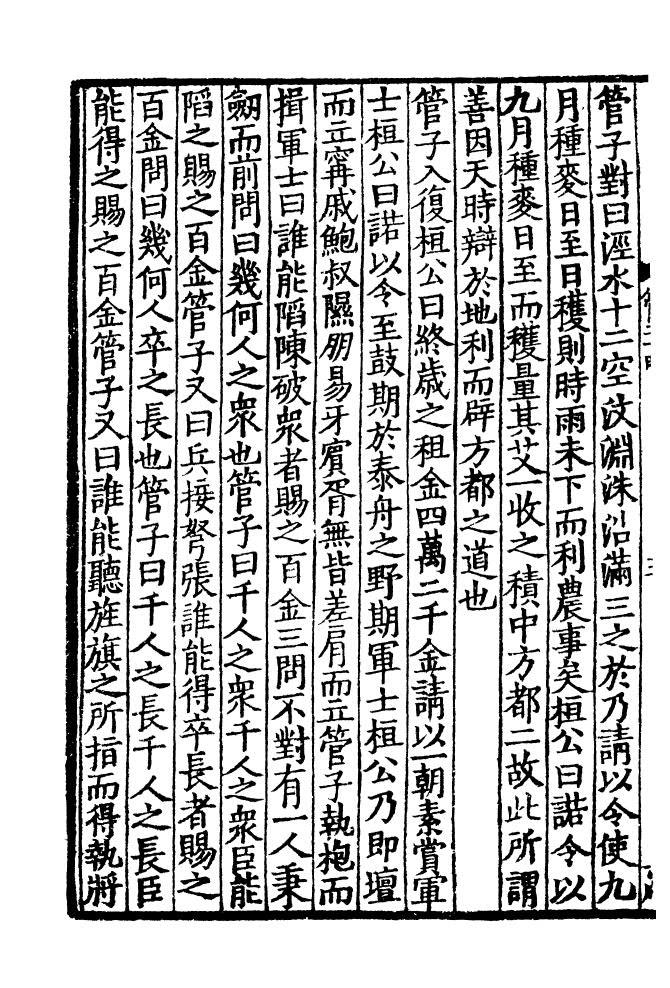 管子對曰逕水十二空汶淵洙沿滿三之於乃請以令使九
月種麥日至日穫則時雨未下而利農事矣桓公曰諾令以
九月種麥日至而穫量其艾一收之積中方都二故此所謂
善因天時辯於地利而辟方都之道也
管子入復桓公曰終歲之租金四萬二千金請以一朝素賞軍
士桓公曰諾以令至鼓期於泰舟之野期軍士桓公乃即壇
而立甯戚鮑叔隰朋易牙賓胥無皆差肩而立管子執枹而
揖軍士曰誰能陷陳破衆者賜之百金三問不對有一人秉
劒而前問曰幾何人之衆也管子曰千人之衆千人之衆臣能
陷之賜之百金管子又曰兵接弩張誰能得卒長者賜之
百金問曰幾何人卒之長也管子曰千人之長千人之長臣
能得之賜之百金管子又曰誰能聽旌旗之所指而得執將